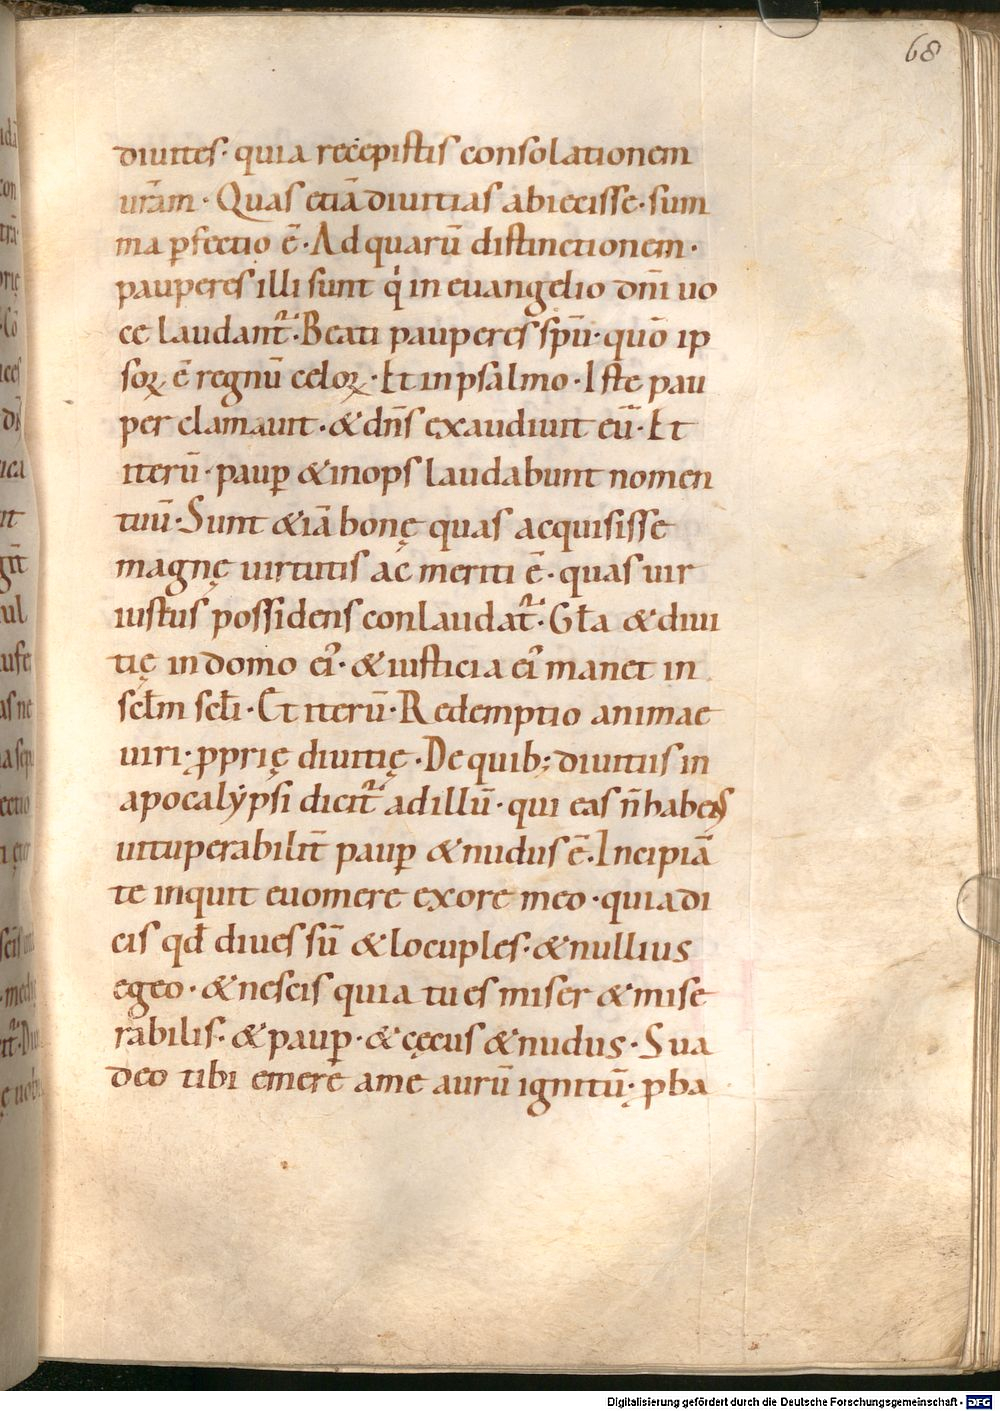 68
diuites· quia recepistis consolationem
ur̄am· Quas etiā diuitias abiecisse· sum
ma ꝑfectio ē· Ad quarū distinctionem·
pauperes illi sunt qͥ in euangelio dn̄i uo
ce laudant᷑· Beati pauperes sp̄u· quō ip
soꝝ ē regnū celoꝝ· Et in psalmo· Iste pau
per clamauit· & dn̄s exaudiuit eū· Et
iterū· pauꝑ & inops laudabunt nomen
tuū· Sunt & iā bonę quas acquisisse
magnę uirtutis ac meriti ē· quas uir
iustus possidens conlaudat᷑· Gƚa & diui
tię in domo ei᷒· & iusticia ei᷒ manet in
scƚm scƚi· Et iterū· Redemptio animae
uiri· ꝓprię diuitię· De quib; diuitiis in
apocalẏpsi dicit᷑ ad illū· qui eas n̄ habens
uituperabilit̄ pauꝑ & nudus ē· Incipiā
te inquit euomere ex ore meo· quia di
cis qđ diues sū & locuples· & nullius
egeo· & nescis quia tu es miser & mise
rabilis· & pauꝑ· & cęcus & nudus· Sua
deo tibi emere a me aurū ignitū· ꝓba
Digitalisierung gefördert durch die Deutsche Forschungsgemeinschaft - DFG